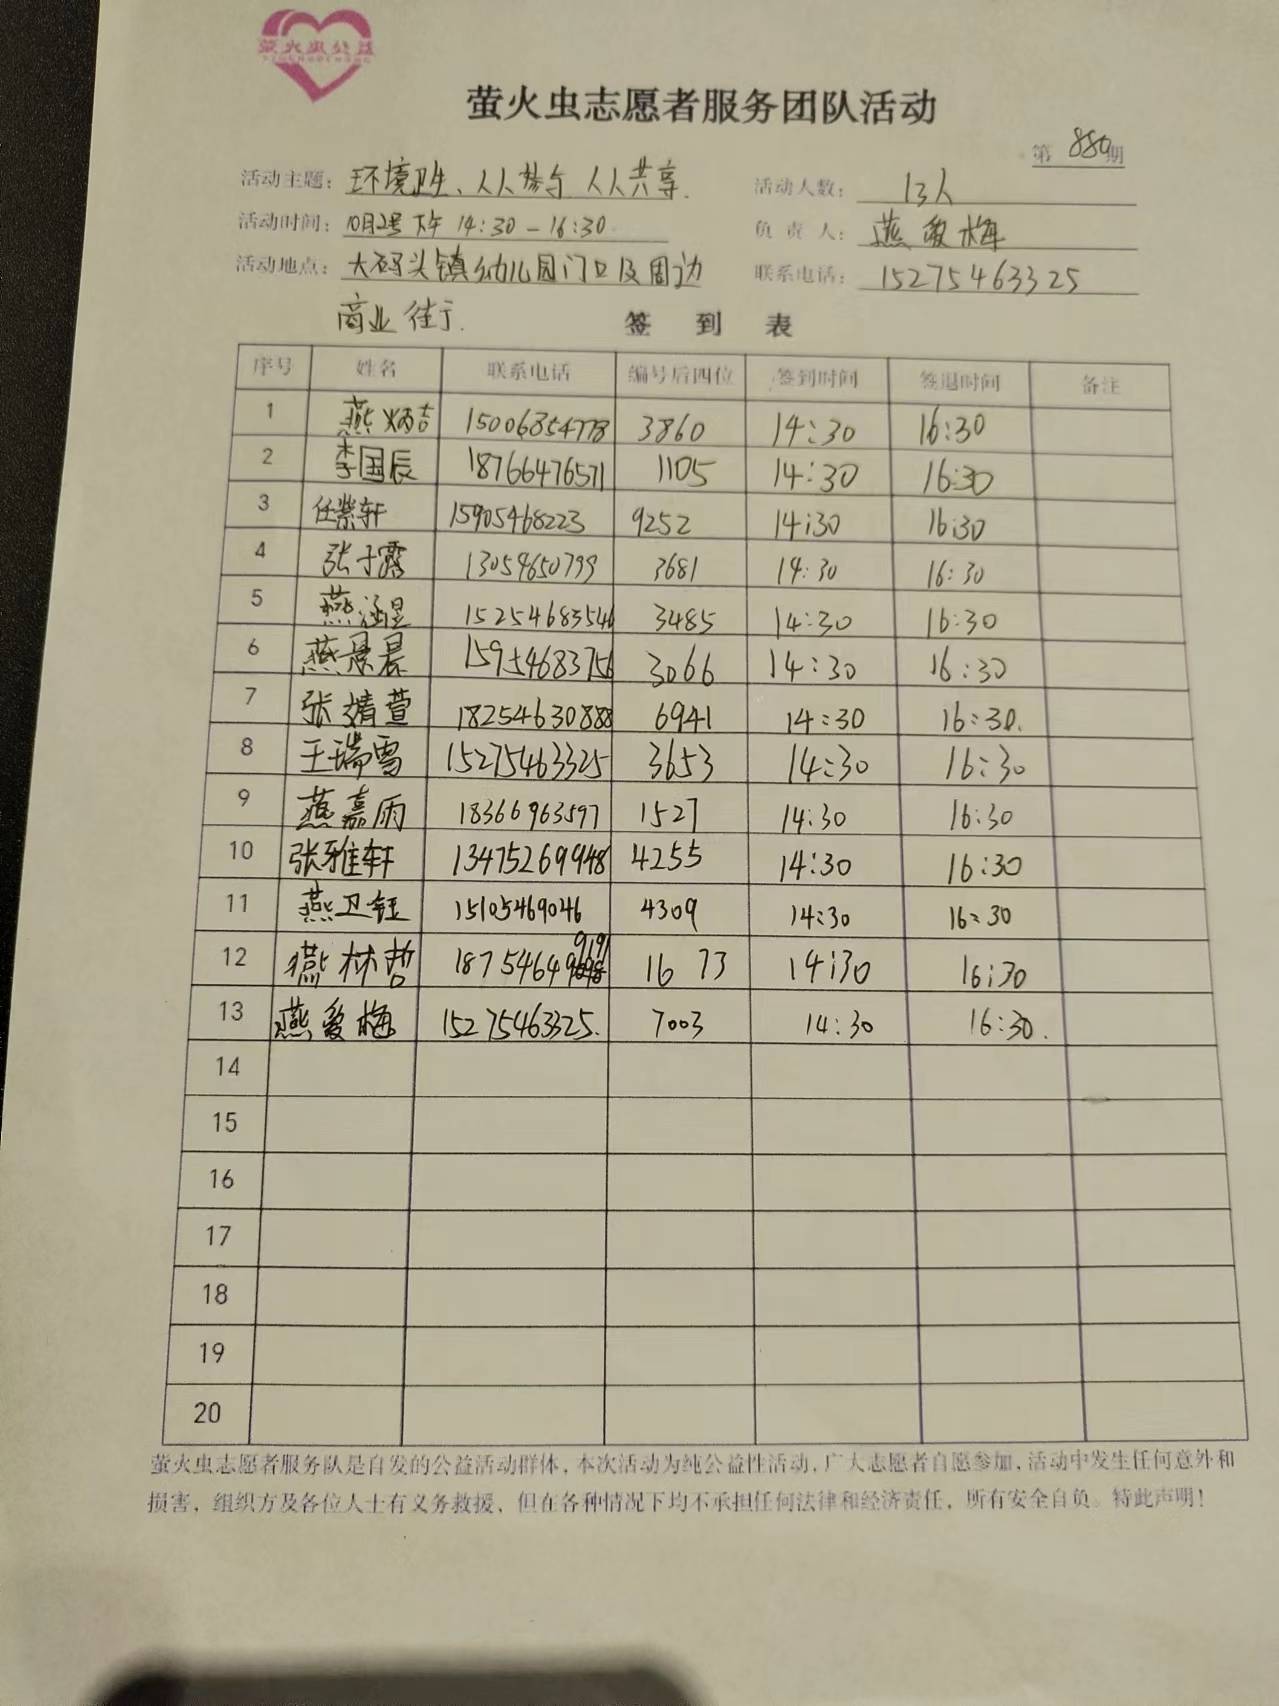 萤火虫公益
萤火虫志愿者服务团队活动
第 880 期
活动主题：环境卫生、人人参与 人人共享. 活动人数：13人
活动时间：10月2号 下午 14:30 - 16:30 负责人：燕爱梅
活动地点：大码头镇幼儿园门口及周边 联系电话：15275463325
商业街.
签 到 表
序号 姓名 联系电话 编号后四位 签到时间 签退时间 备注
1 燕炳吉 15006854778 3860 14:30 16:30
2 李国辰 18766476571 1105 14:30 16:30
3 任紫轩 15905468223 9252 14:30 16:30
4 张于露 13059650799 3681 14:30 16:30
5 燕涵昱 15254683546 3485 14:30 16:30
6 燕景晨 15954683756 3066 14:30 16:30
7 张婧萱 18254630888 6941 14:30 16:30.
8 王瑞雪 15275463325 3653 14:30 16:30
9 燕嘉雨 18366963597 1527 14:30 16:30
10 张雅轩 13475269948 4255 14:30 16:30
11 燕卫钰 15105469046 4309 14:30 16:30
12 燕林哲 1673 14:30 16:30
13 燕爱梅 15275463325. 7003 14:30 16:30.
14
15
16
17
18
19
20
萤火虫志愿者服务队是自发的公益活动群体，本次活动为纯公益性活动，广大志愿者自愿参加，活动中发生任何意外和
损害，组织方及各位人士有义务救援，但在各种情况下均不承担任何法律和经济责任，所有安全自负。特此声明！